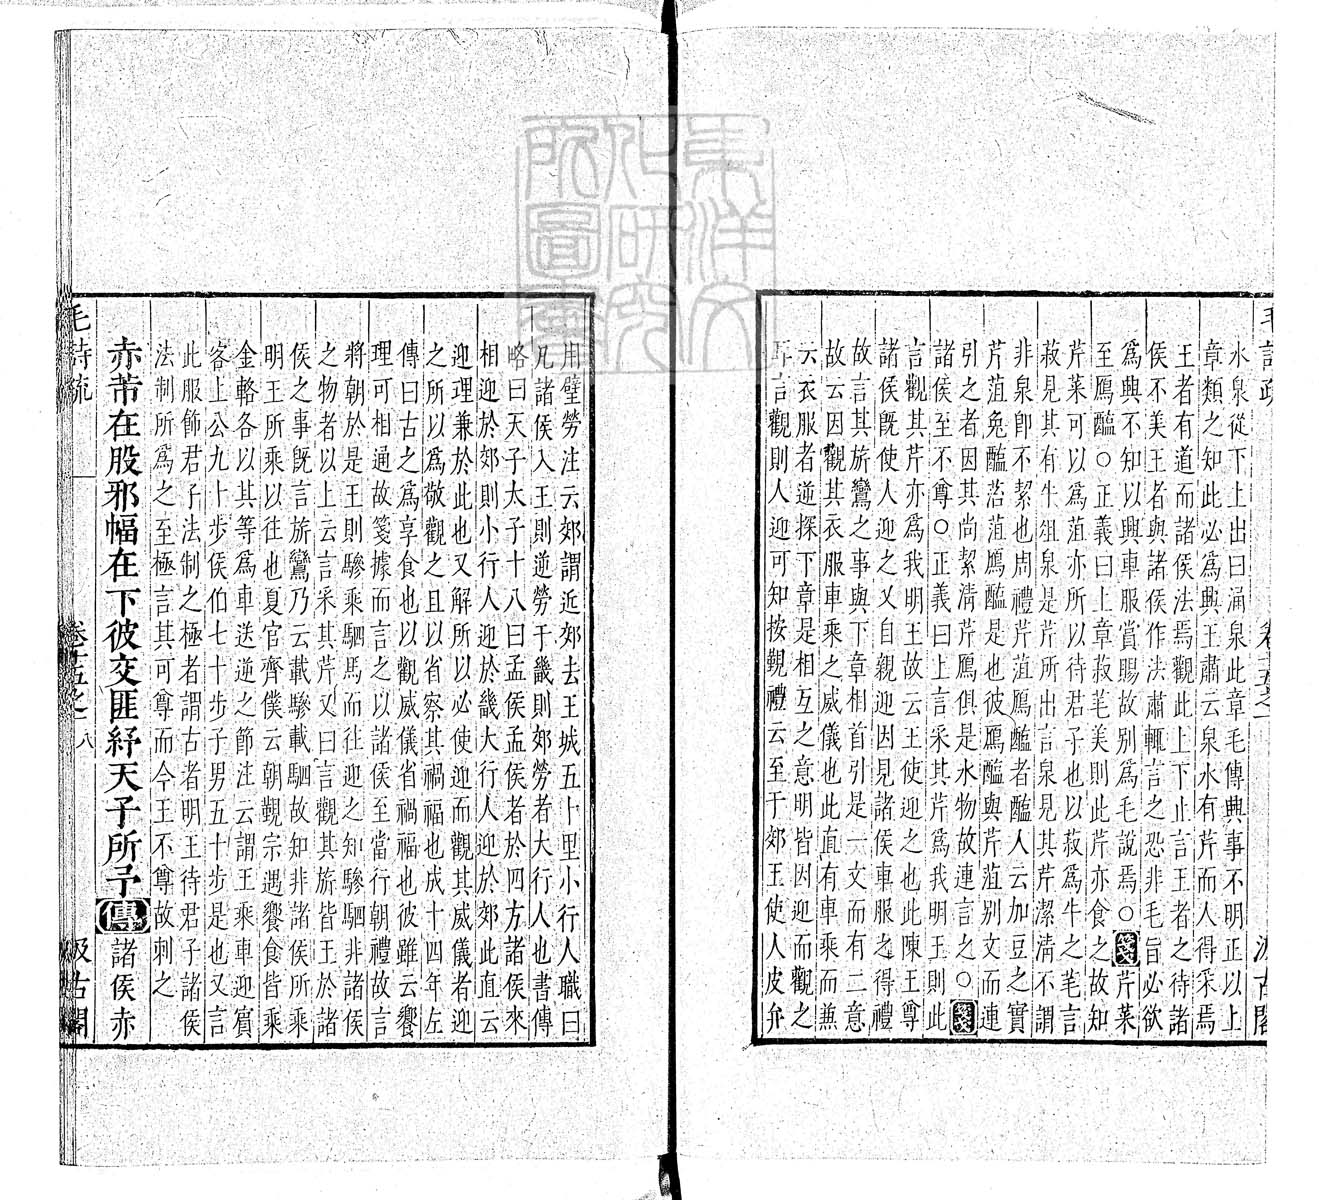 水泉從下上出曰涌泉此章毛傳興事不明正以上
章類之知此必爲興王肅云泉水有芹而人得采焉
王者有道而諸侯法焉觀此上下止言王者之待諸
侯不美王者與諸侯作法肅輒言之恐非毛旨必欲
爲興不知以興車服賞賜故別爲毛說焉○箋芹菜
至鴈醢○正義曰上章菽芼美則此芹亦食之故知
芹菜可以爲菹亦所以待君子也以菽爲牛之芼言
菽見其有牛俎泉是芹所出言泉見其芹潔清不謂
非泉卽不絜也周禮芹菹鴈醢者醢人云加豆之實
芹菹兔醢菭菹鴈醢是也彼鴈醢與芹菹别文而連
引之者因其尚絜淸芹鴈俱是水物故連言之○箋
諸侯至不尊○正義曰上言采其芹爲我明王則此
言觀其芹亦爲我明王故云王使迎之也此陳王尊
諸侯旣使人迎之又自親迎因見諸侯車服之得禮
故言其旂鸞之事與下章相首引是一文而有二意
故云因觀其衣服車乘之威儀也此直有車乘而兼
云衣服者逆探下章是相互之意明皆因迎而觀之
耳言觀則人迎可知按覲禮云至于郊王使人皮弁
用璧勞注云郊謂近郊去王城五十里小行人職曰
凡諸侯入王則逆勞于畿則郊勞者大行人也書傳
略曰天子太子十八曰孟侯孟侯者於四方諸侯來
相迎於郊則小行人迎於畿大行人迎於郊此直云
迎理兼於此也又解所以必使迎而觀其威儀者迎
之所以爲敬觀之且以省察其禍福也成十四年左
傳曰古之爲享食也以觀威儀省禍福也彼雖云饗
理可相通故箋據而言之以諸侯至當行朝禮故言
將朝於是王則驂乘駟馬而往迎之知驂駟非諸侯
之物者以上云言采其芹又曰言觀其旂皆王於諸
侯之事旣言旂鸞乃云載驂載駟故知非諸侯所乘
明王所乘以往也夏官齊僕云朝覲宗遇饗食皆乘
金輅各以其等爲車送逆之節注云謂王乘車迎賓
客上公九十步侯伯七十步子男五十步是也又言
此服飾君子法制之極者謂古者明王待君子諸侯
法制所爲之至極言其可尊而今王不尊故刺之
赤芾在股邪幅在下彼交匪紓天子所予傳諸侯赤
毛詩疏
卷十五之一
八
汲古閣